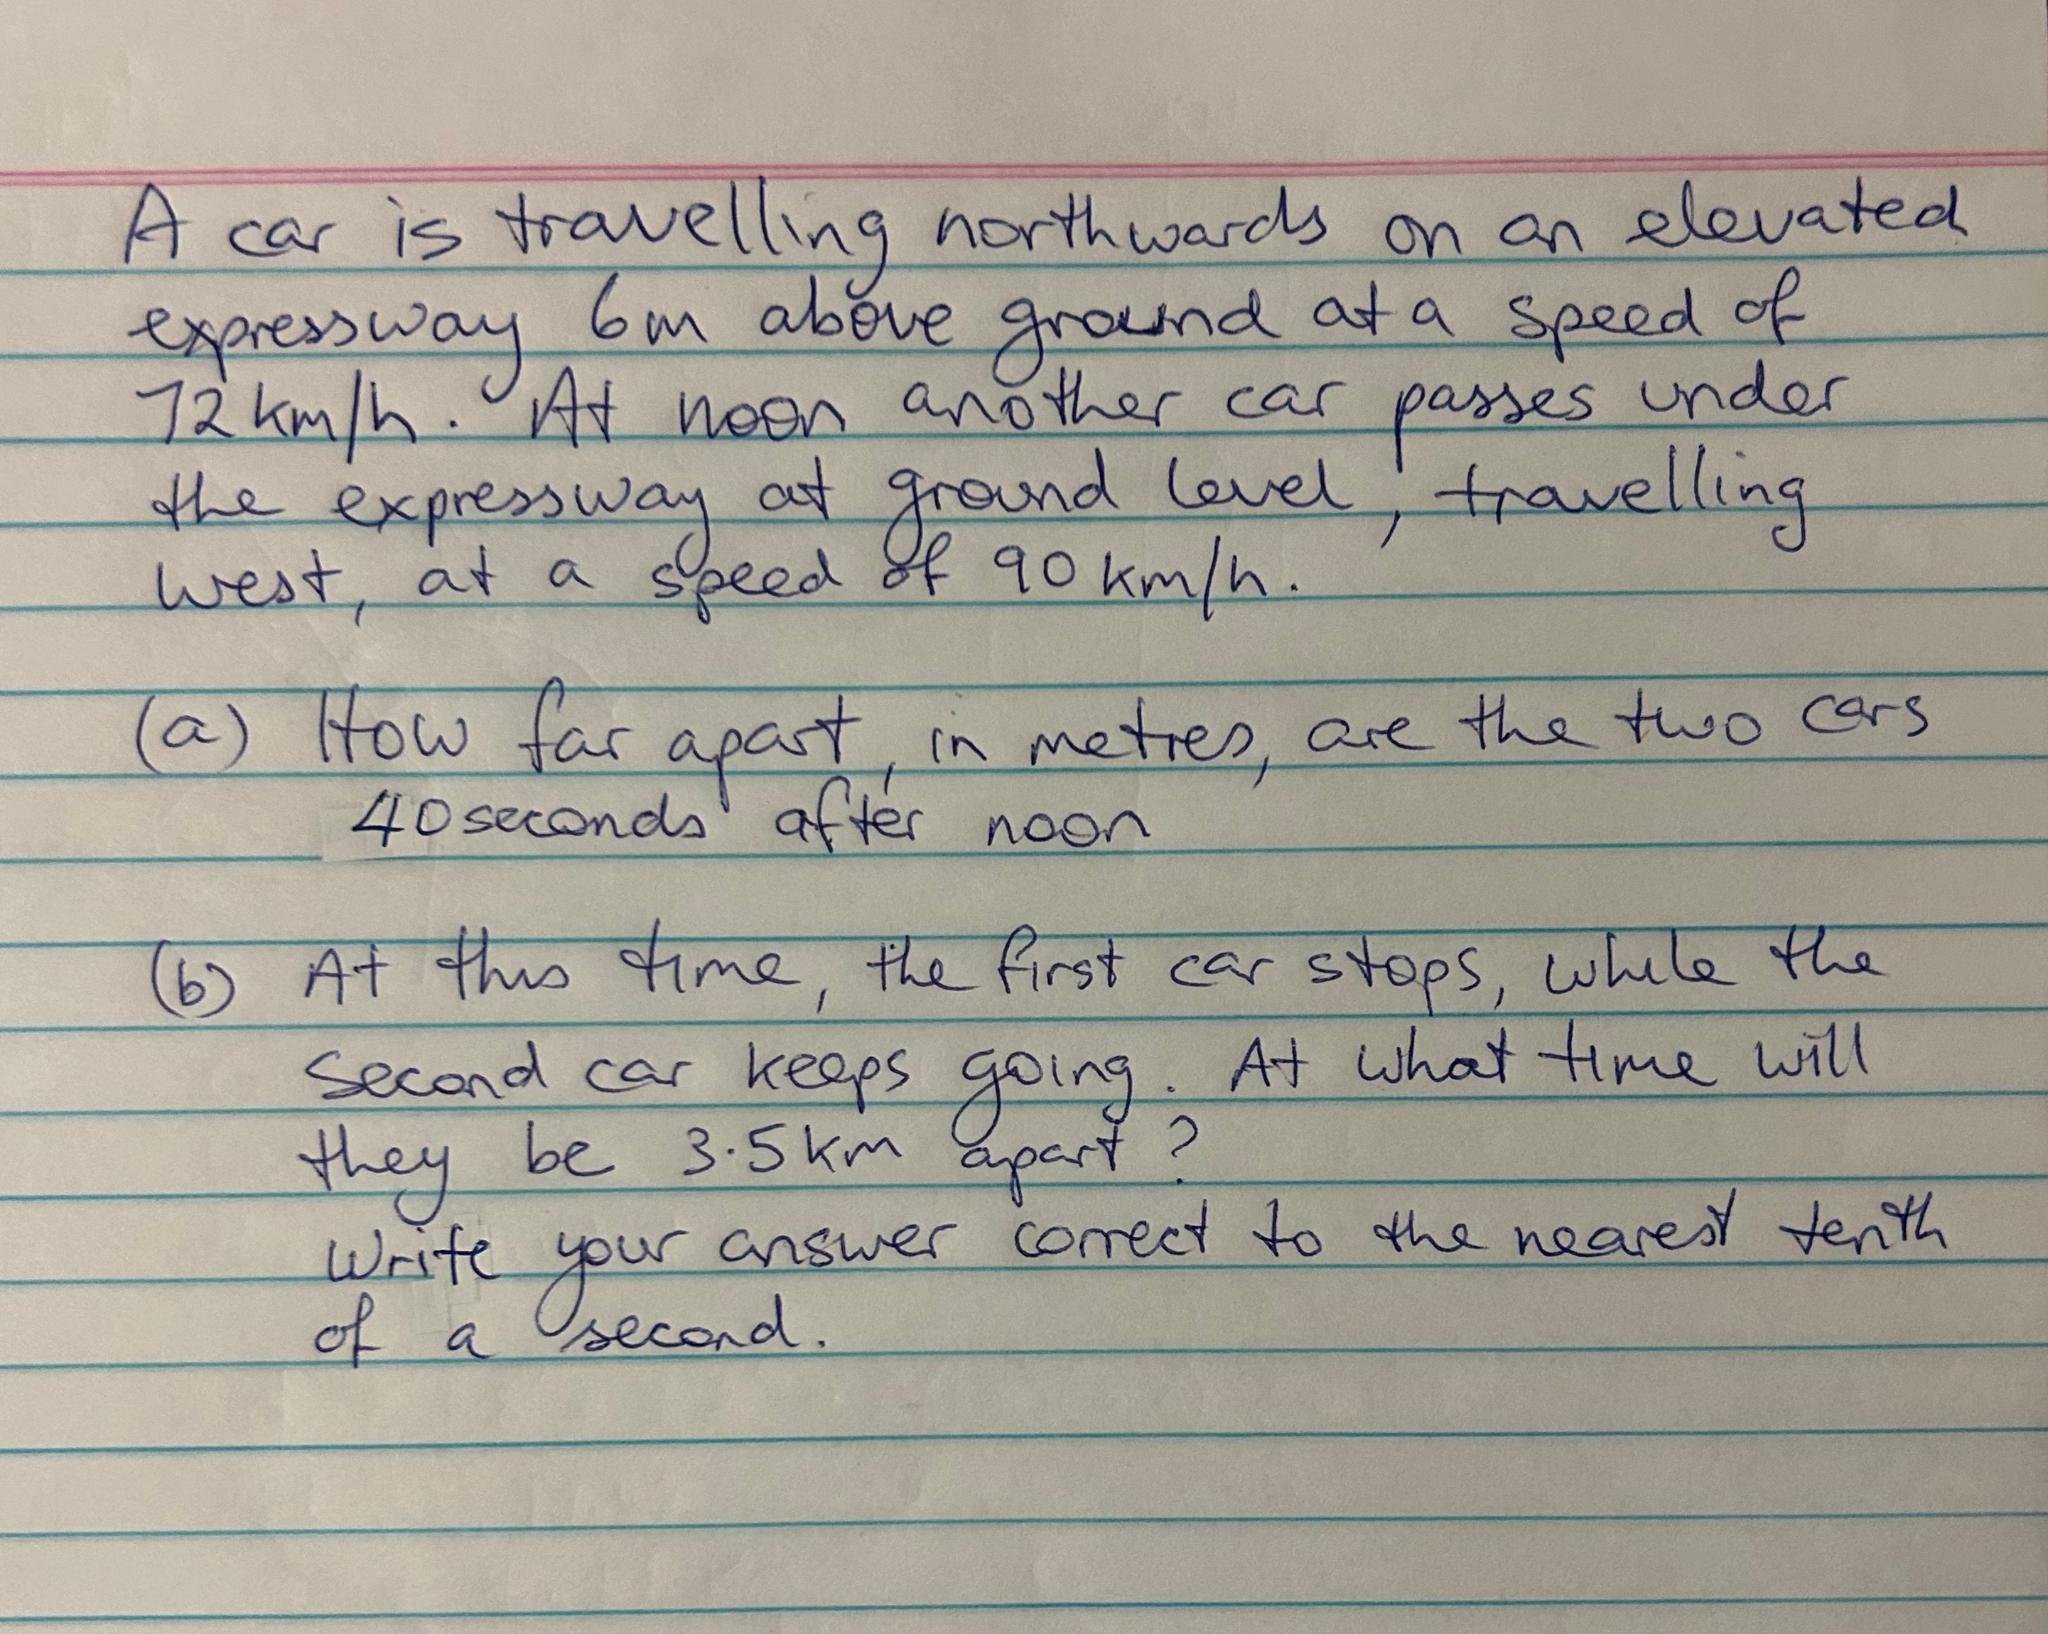 A car is travelling northwards on an elevated
expressway 6m above ground at a speed of
72 km/h. At noon another car passes under
the expressway at ground level, travelling
west, at a speed of 90 km/h.
(a) How far apart, in metres, are the two cars
40 seconds after noon
(b) At this time, the first car stops, while the
second car keeps going. At what time will
they be 3.5 km apart?
Write your answer correct to the nearest tenth
of a second.